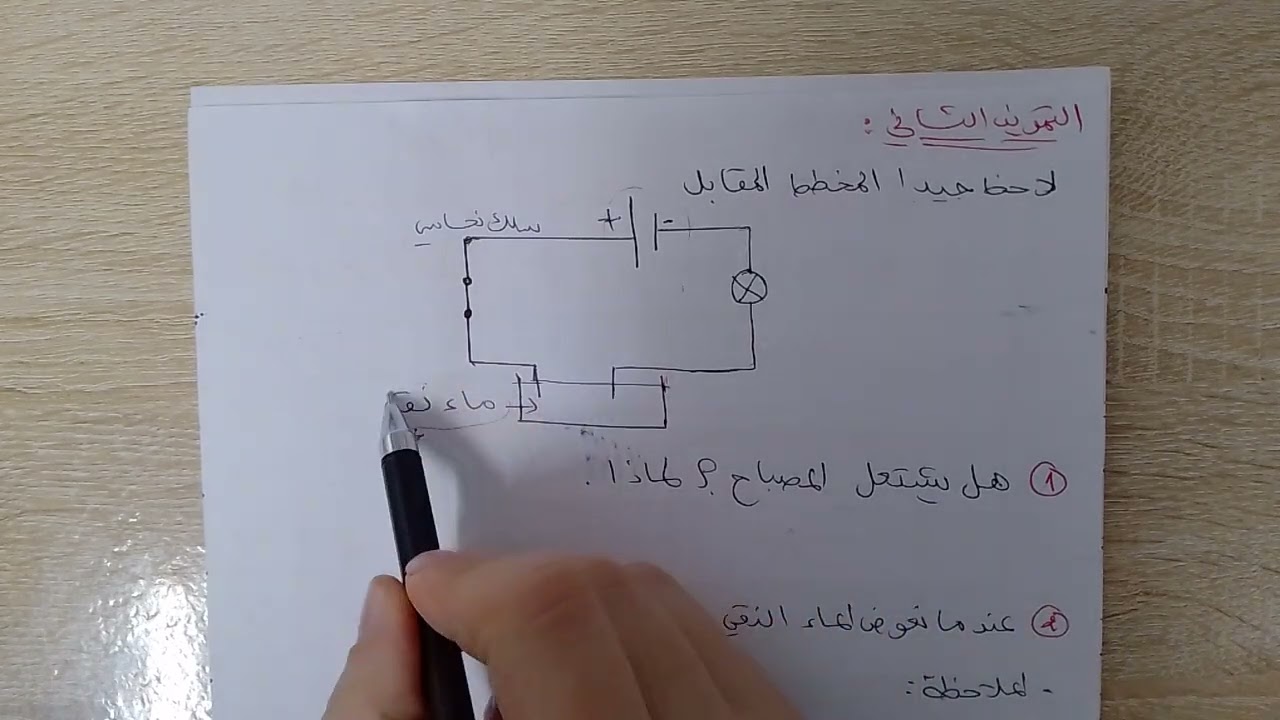 التمرين الثاني :
لاحظ جيدا المخطط المقابل
سلك نحاسي
+ -
ماء نقي
① هل يشتعل المصباح ؟ لماذا .
② عندما نعوض الماء النقي
- الملاحظة :